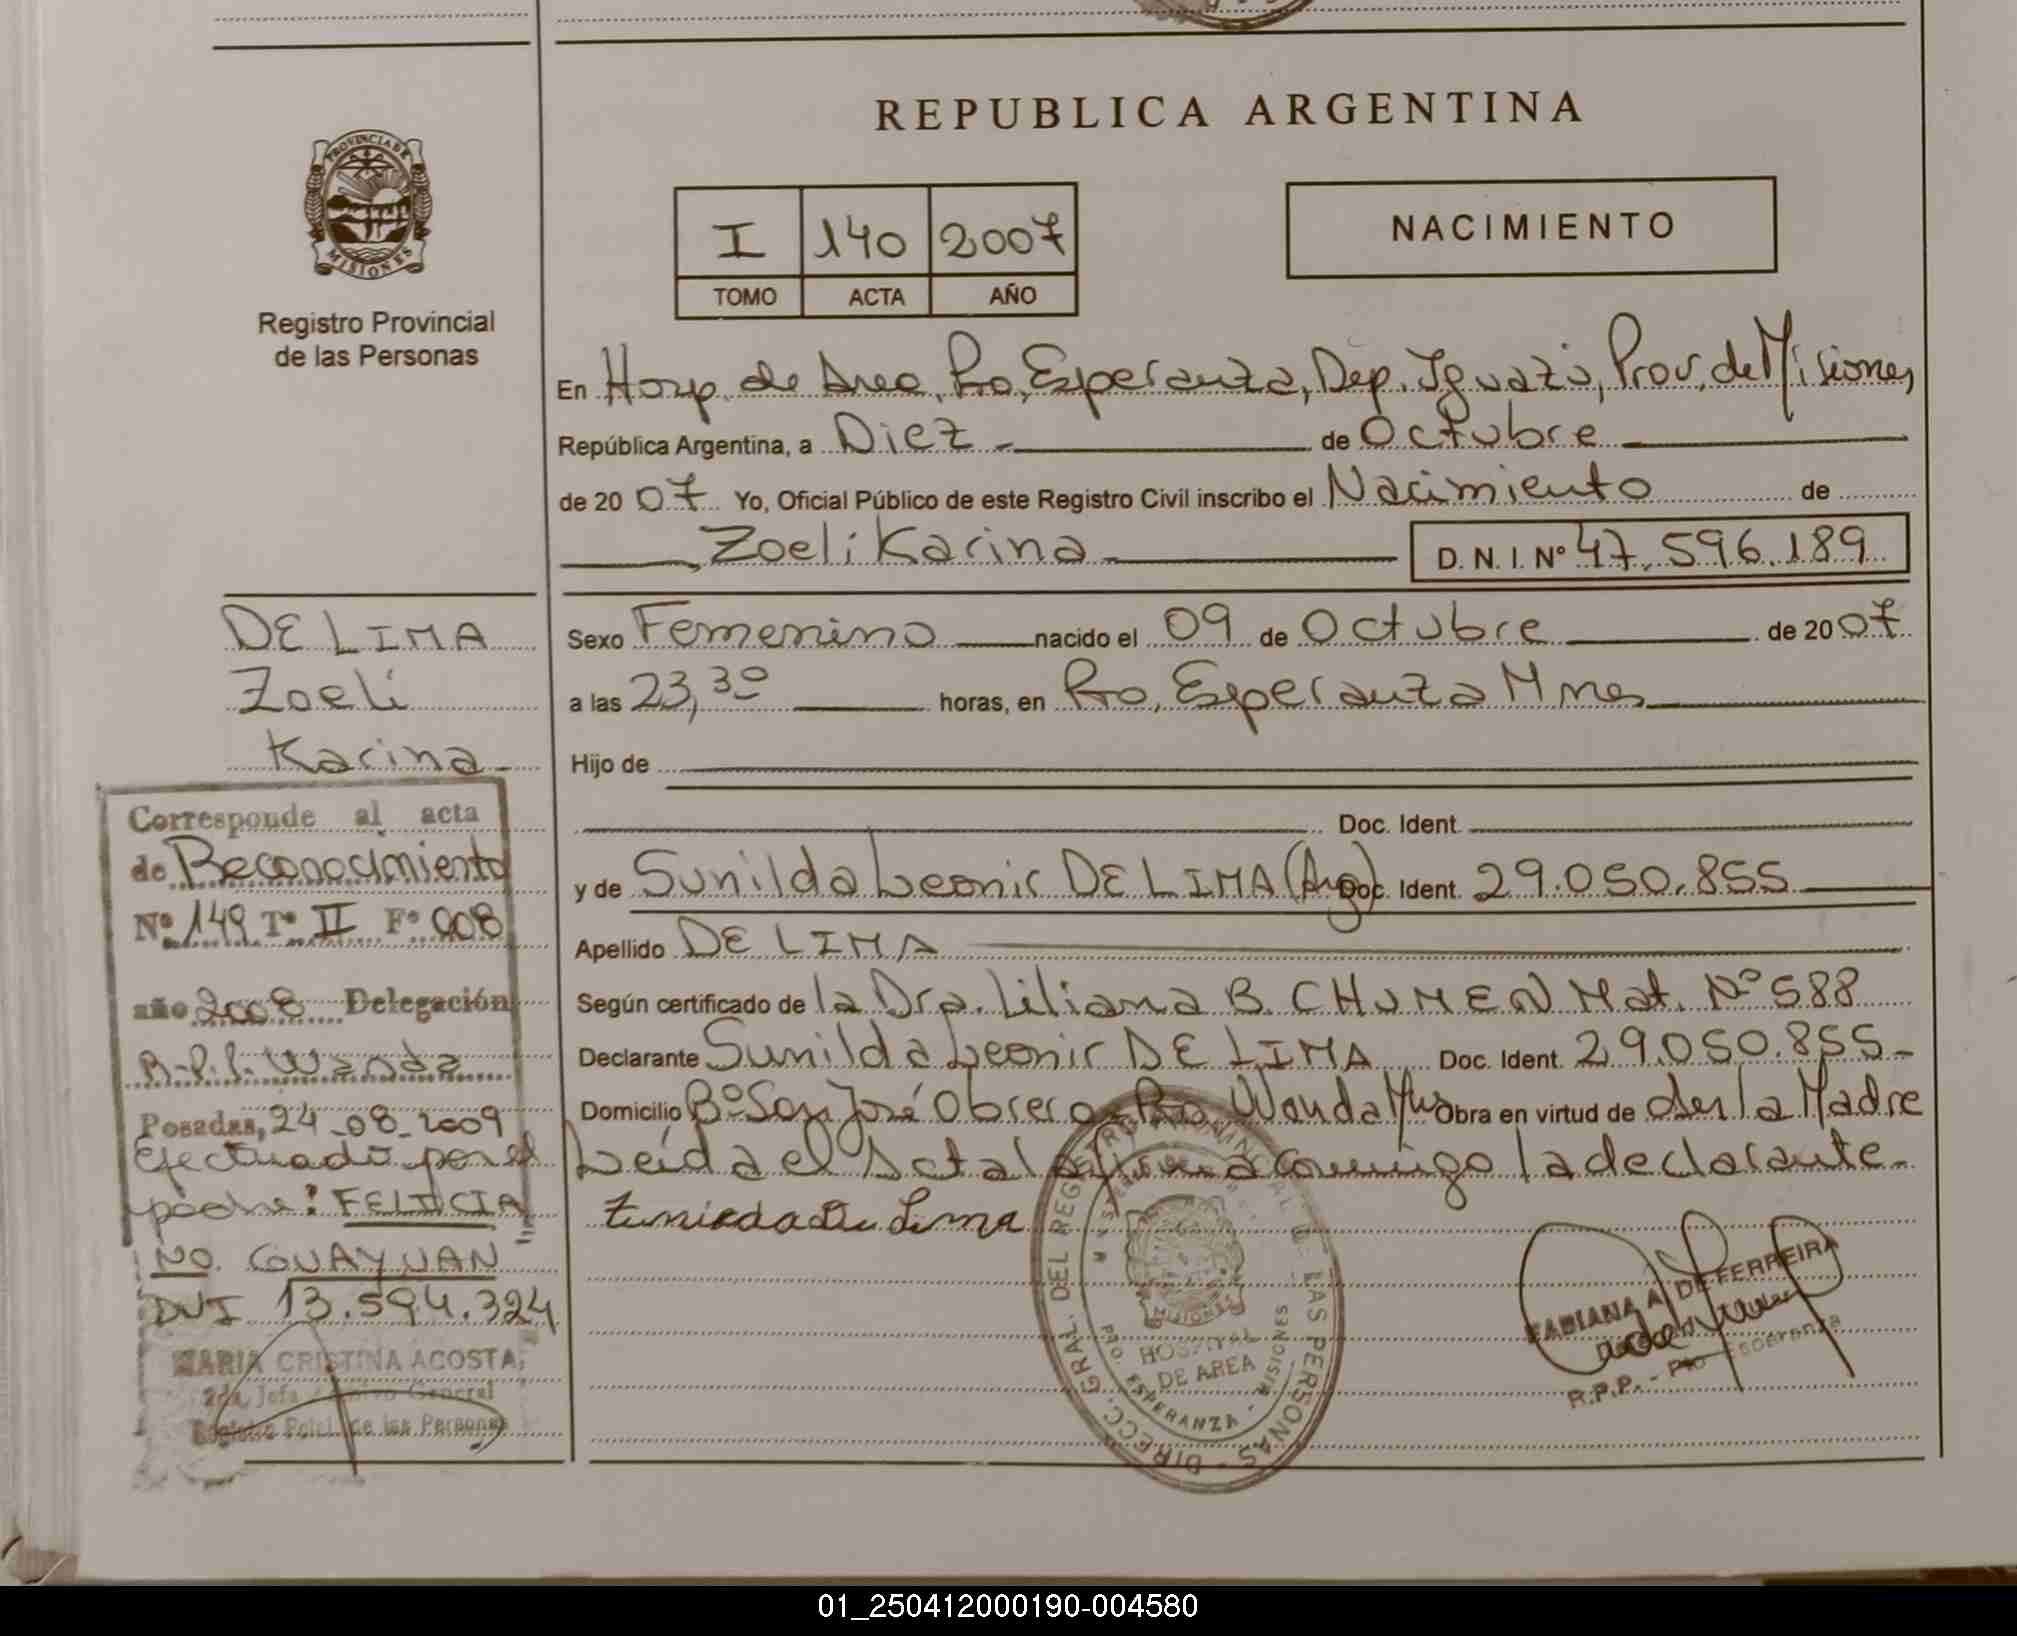 REPUBLICA ARGENTINA
PROVINCIA DE
MISIONES
Registro Provincial
de las Personas
I 140 2007
TOMO ACTA AÑO
NACIMIENTO
En Hosp. de Area, Pto. Esperanza, Dep. Iguazú, Prov. de Misiones
República Argentina, a Diez de Octubre
de 2007 Yo, Oficial Público de este Registro Civil inscribo el Nacimiento de
Zoeli Karina D. N. I. Nº 47.596.189
Sexo Femenino nacido el 09 de Octubre de 2007
a las 23,30 horas, en Pto. Esperanza Mnes
Hijo de
Doc. Ident.
y de Sunilda Leonir DE LIMA (Arg) Doc. Ident. 29.050.855
Apellido DE LIMA
Según certificado de la Dra. Liliana B. CHUMEN Mat. Nº 588
Declarante Sunilda Leonir DE LIMA Doc. Ident. 29.050.855-
Domicilio Bº San José Obrero - Pto. Wanda Mns Obra en virtud de ser la Madre
Leída el Acta la firma conmigo la declarante-
De Lima
DE LIMA
Zoeli
Karina-
Corresponde al acta
de Reconocimiento
Nº 149 Tº II Fº 008
año 2008 Delegación
R.P.P. Wanda
Posadas, 24-08-2009
Efectuado por el
padre: FELICIA
NO. GUAYUAN
DNI 13.594.324
MARIA CRISTINA ACOSTA
2da. Jefa Archivo General
Registro Pcial. de las Personas
DIRECC. GRAL. DEL REGISTRO PROVINCIAL DE LAS PERSONAS
MISIONES
HOSPITAL
DE AREA
PTO. ESPERANZA - MISIONES
FABIANA A. DE FERREIRA
R.P.P. - Pto Esperanza
01_250412000190-004580